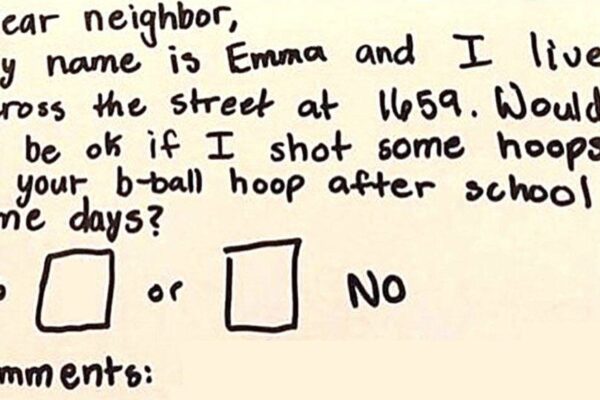 ear neighbor,
y name is Emma and I live
ross the street at 1659. Would
be ok if I shot some hoops
your b-ball hoop after school
me days?
or NO
mments: